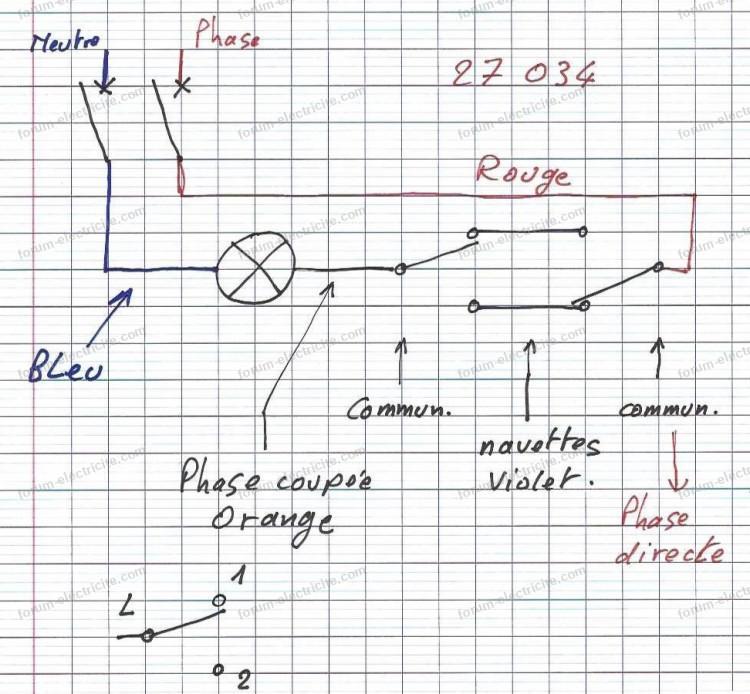 Neutre
Phase
27 034
Rouge
BLeu
Commun.
commun.
navettes
Violet.
Phase coupée
Orange
Phase
directe
L
1
2
forum-electricite.com